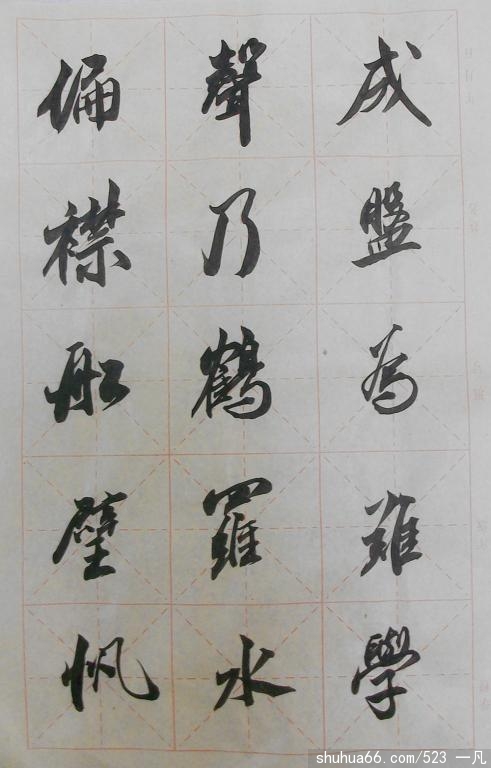 成盤為雖學
聲乃鶴羅水
偏襟船壁帆
shuhua66.com/523 一凡